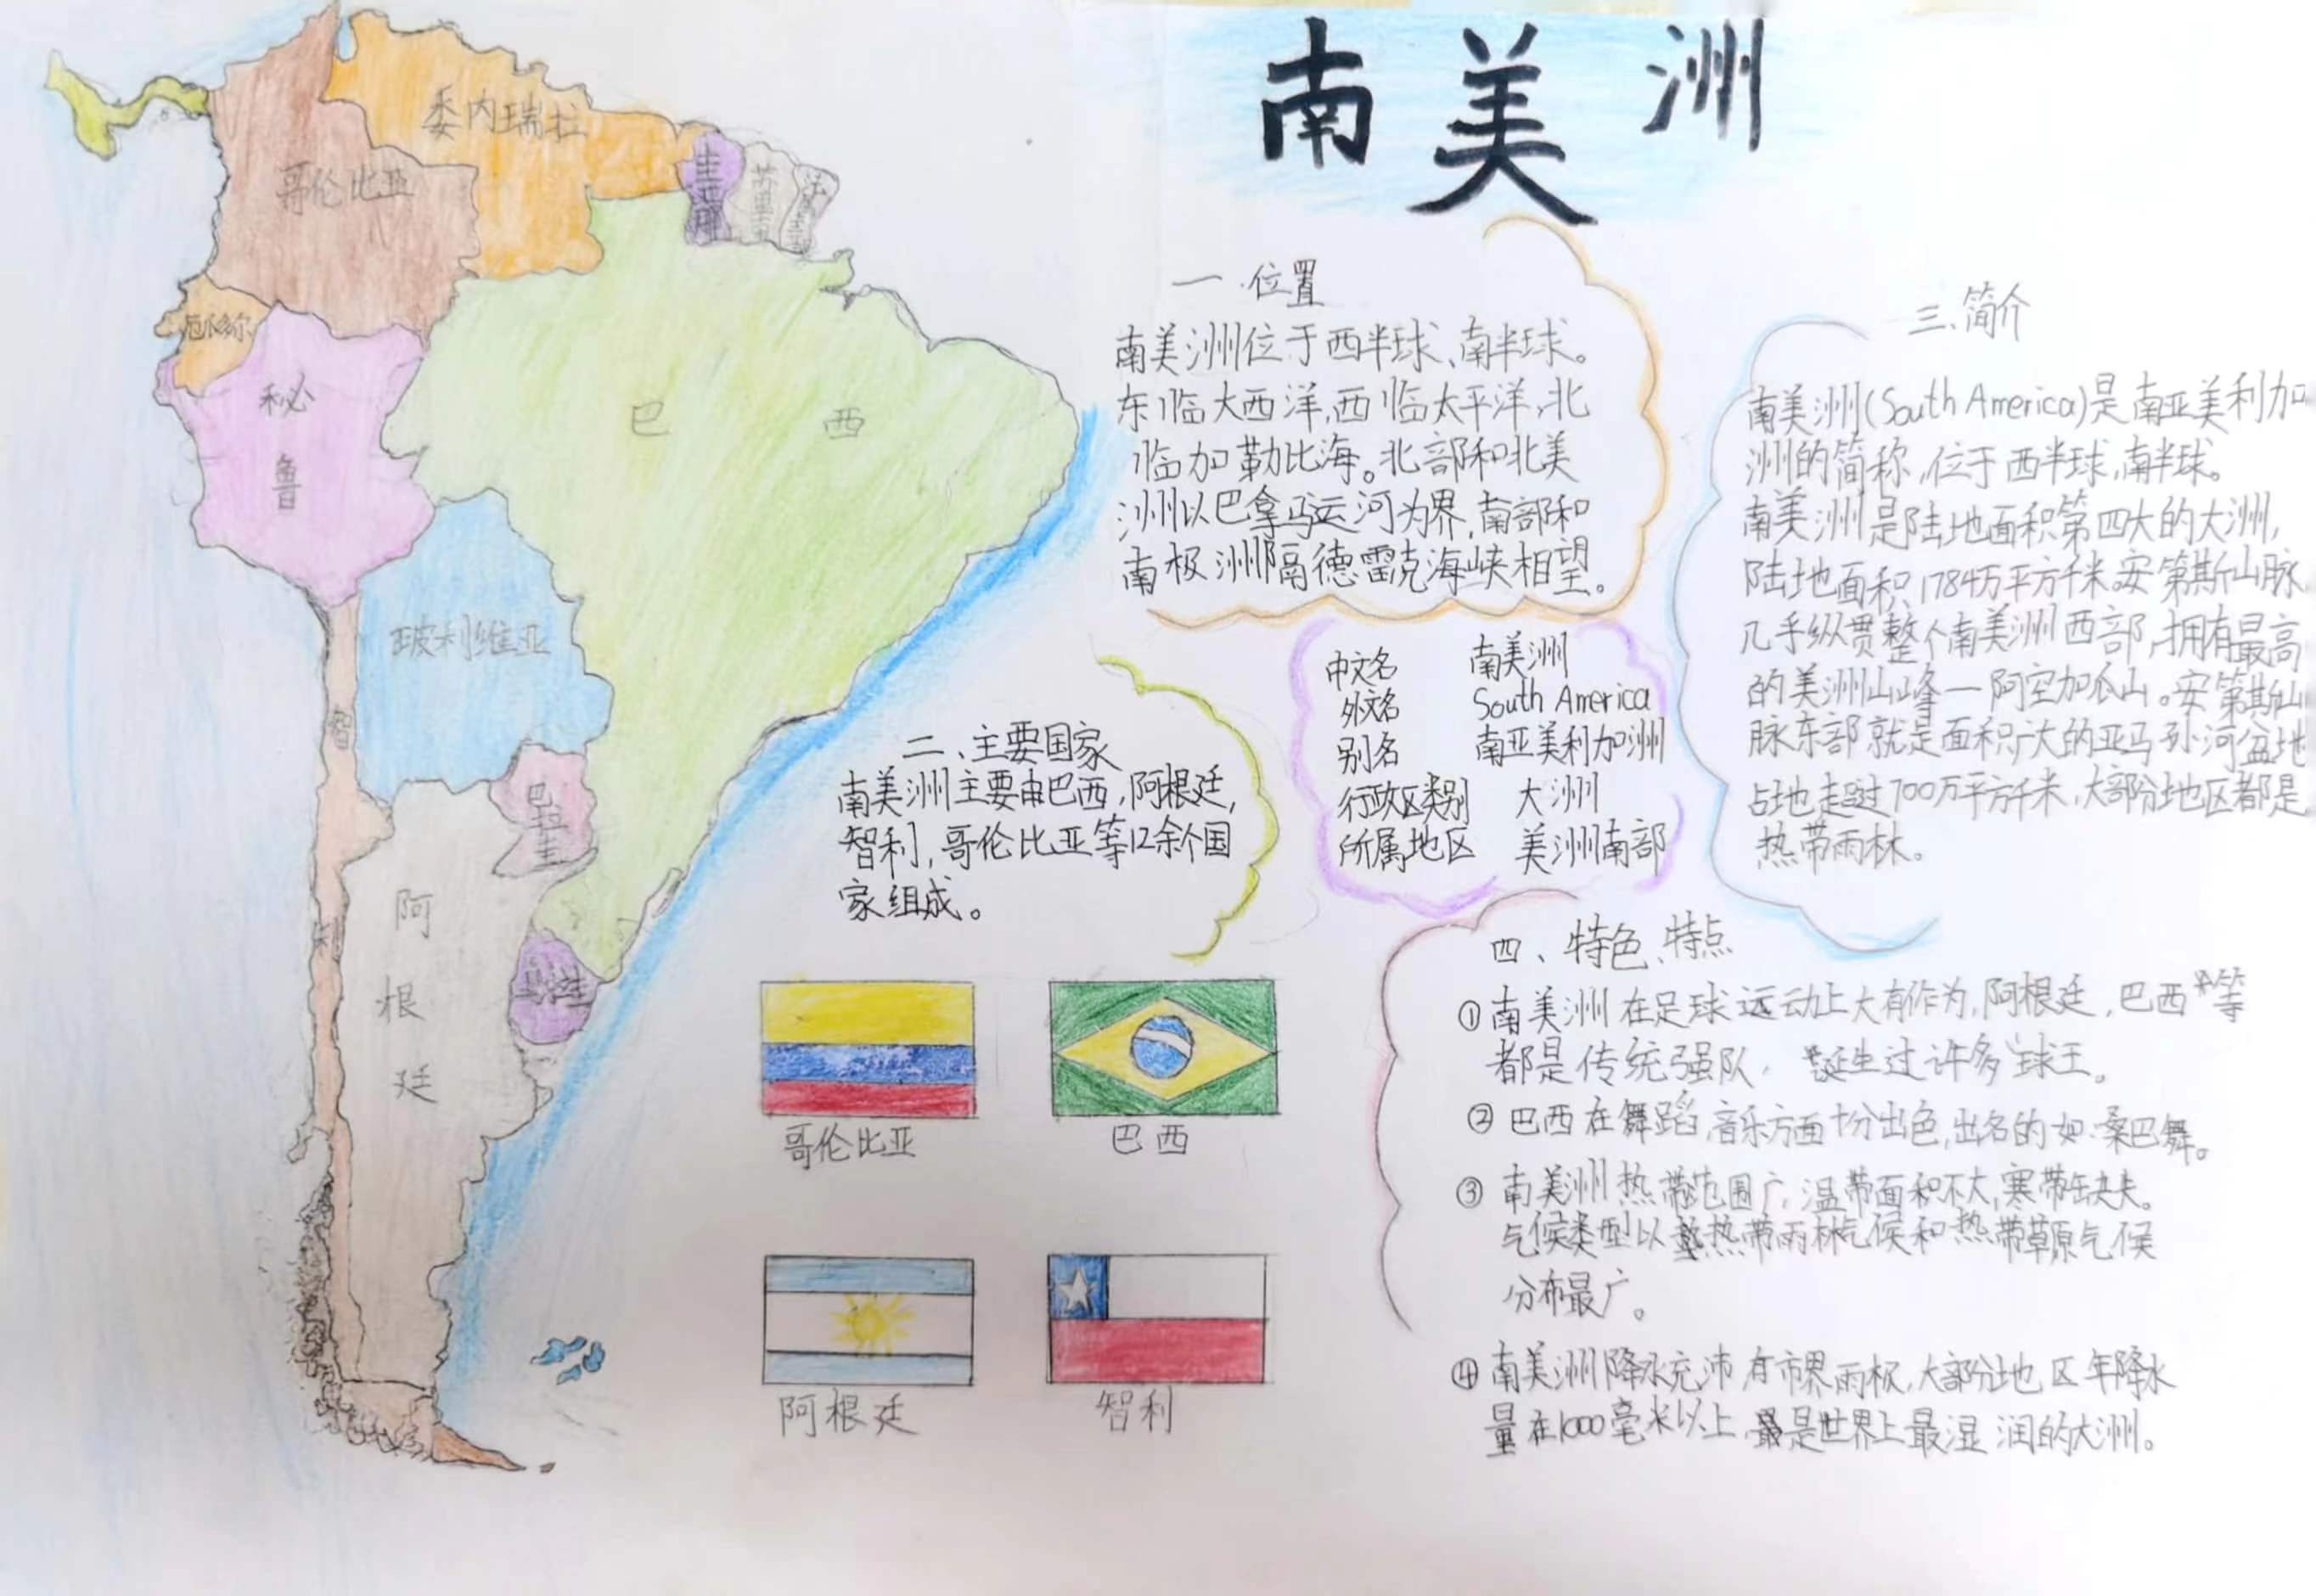 南美洲
委内瑞拉
哥伦比亚
圭亚那
厄瓜多尔
秘鲁
巴西
玻利维亚
智利
巴拉圭
阿根廷
一.位置
南美洲位于西半球、南半球。
东临大西洋,西临太平洋,北
临加勒比海。北部和北美
洲以巴拿马运河为界,南部和
南极洲隔德雷克海峡相望。
二、主要国家
南美洲主要由巴西,阿根廷,
智利,哥伦比亚等12余个国
家组成。
中文名 南美洲
外文名 South America
别名 南亚美利加洲
行政区类别 大洲
所属地区 美洲南部
三、简介
南美洲(South America)是南亚美利加
洲的简称,位于西半球,南半球。
南美洲是陆地面积第四大的大洲,
陆地面积1784万平方千米。安第斯山脉
几乎纵贯整个南美洲西部,拥有最高
的美洲山峰—阿空加瓜山。安第斯山
脉东部就是面积广大的亚马孙河盆地
占地超过700万平方千米,大部份地区都是
热带雨林。
四、特色、特点
①南美洲在足球运动上大有作为,阿根廷,巴西等
都是传统强队,诞生过许多球王。
②巴西在舞蹈,音乐方面十分出色,出名的如:桑巴舞。
③南美洲热带范围广,温带面积不大,寒带缺失。
气候类型以热带雨林气候和热带草原气候
分布最广。
④南美洲降水充沛有世界雨极,大部分地区年降水
量在1000毫米以上,是世界上最湿润的大洲。
哥伦比亚
巴西
阿根廷
智利